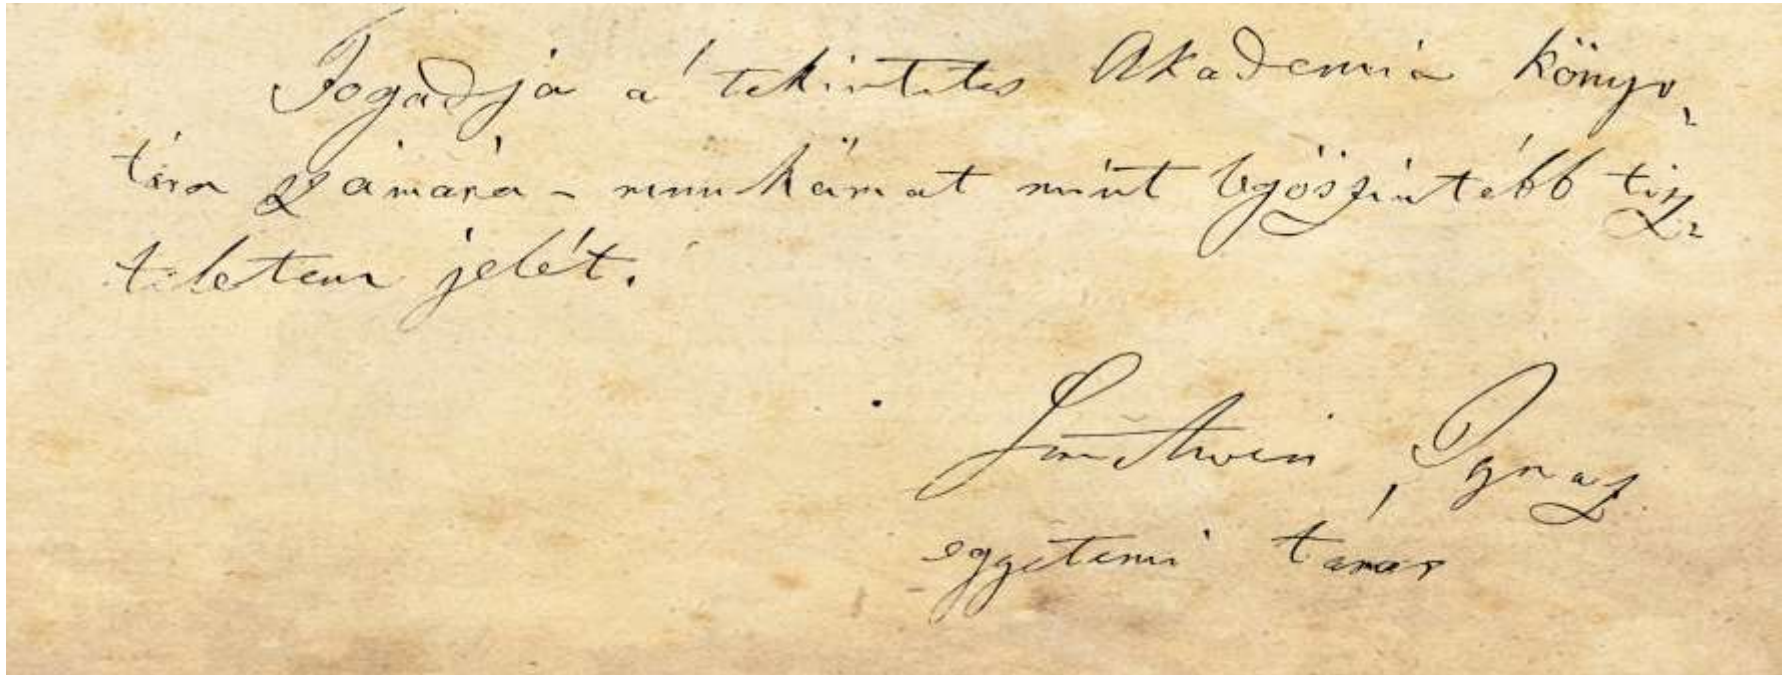 Fogadja a' tekintetes Akademia könyv-
tára számára - munkámat mint legöszintébb tisz-
teletem jelét.
Semmelweis Ignaz
eggyetemi tanár